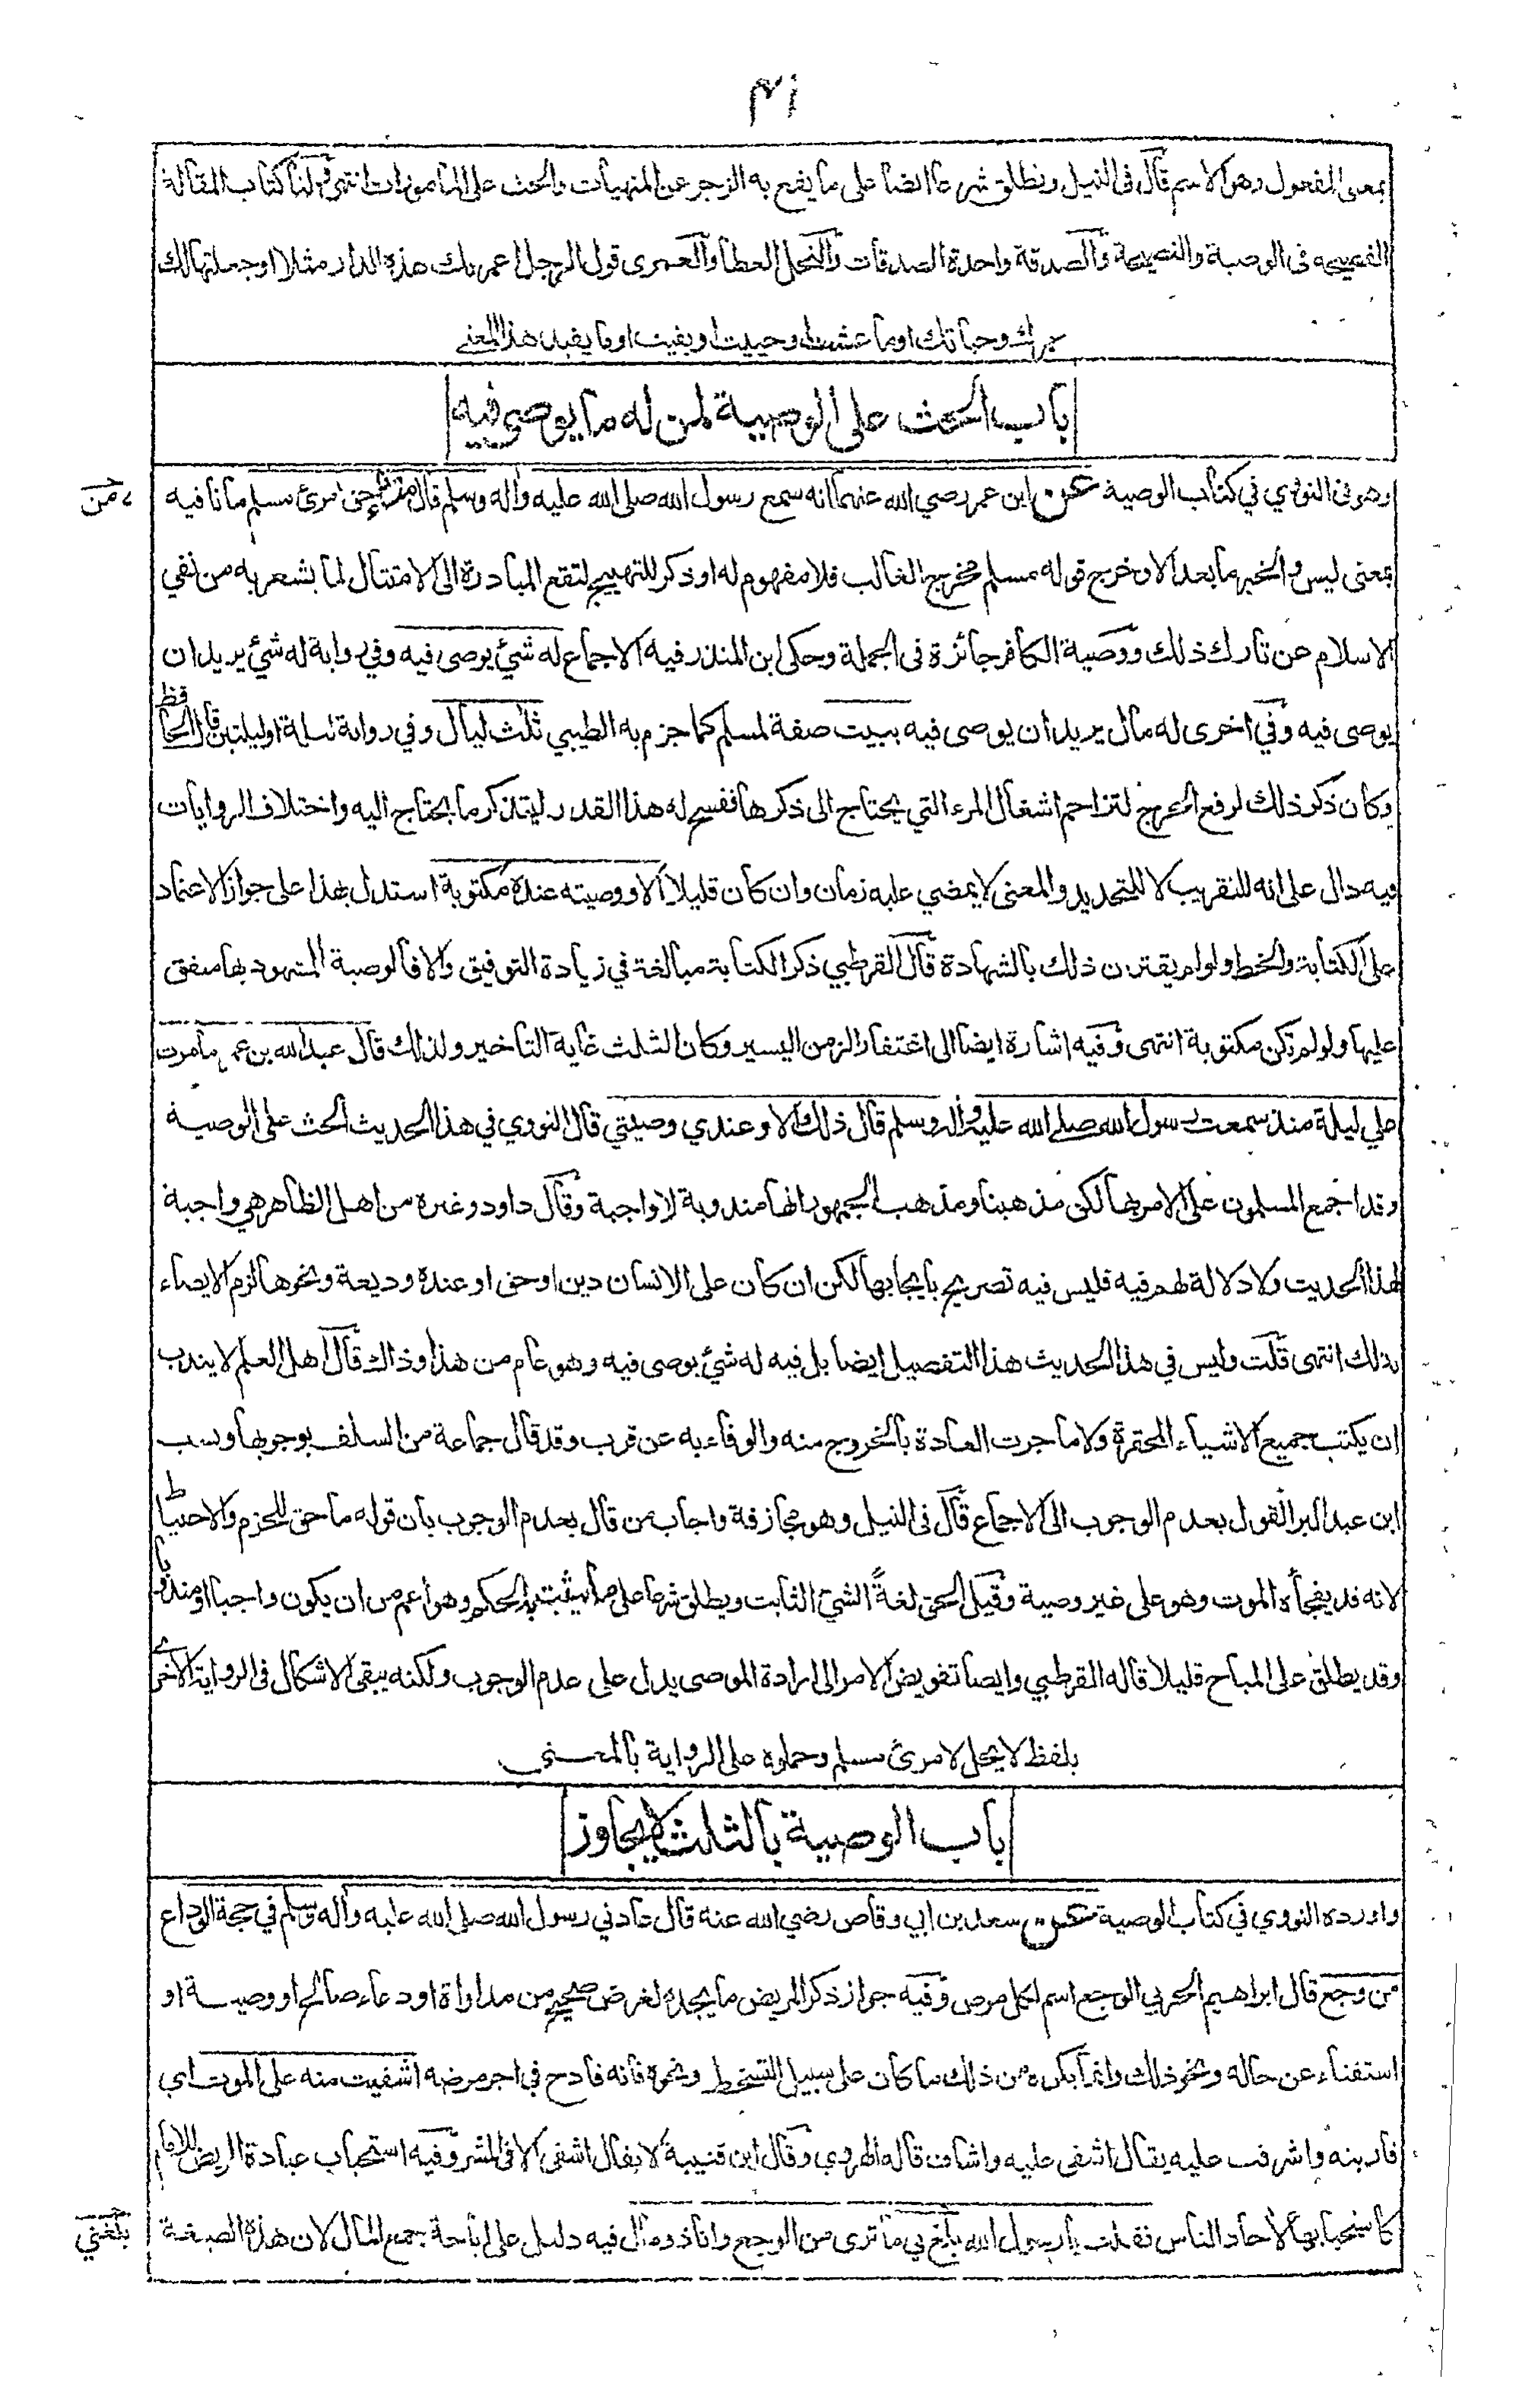 ٣١
بمعنى المفعول وهو الاسم قال في النيل ويطلق شرعا ايضا على ما يقع به الزجر عن المنهيات والحث على المامورات انتهى ولنا كتاب المقالة
الفصيحه فى الوصية والنصيحة والصدقة واحدة الصدقات والنحل العطا والعمرى قول الرجل اعمرتك هذه الدار مثلا او جعلتها لك
عمرك وحياتك او ما عشت او حييت او بقيت او ما يفيد هذا المعنى
باب الحث على الوصية لمن له ما يوصى فيه
وهو فى النووي في كتاب الوصية عن ابن عمر رضي الله عنهما انه سمع رسول الله صلى الله عليه واله وسلم قال ما حق امرئ مسلم ما نافيه
بمعنى ليس والخبر ما بعد الا وخرج قوله مسلم مخرج الغالب فلا مفهوم له او ذكر للتهييج لتقع المبادرة الى الامتثال لما يشعر به من نفي
الاسلام عن تارك ذلك ووصية الكافر جائزة فى الجملة وحكى ابن المنذر فيه الاجماع له شئ يوصى فيه وفي رواية له شئ يريد ان
يوصى فيه وفي اخرى له مال يريد ان يوصى فيه يبيت صفة لمسلم كما جزم به الطيبي ثلث ليال وفي رواية ليلة او ليلتين قال الحافظ
وكان ذكر ذلك لرفع الحرج لتزاحم اشغال المرء التي يحتاج الى ذكرها ففسح له هذا القدر ليتذكر ما يحتاج اليه واختلاف الروايات
فيه دال على انه للتقريب لا للتحديد والمعنى لا يمضي عليه زمان وان كان قليلا الا ووصيته عنده مكتوبة استدل بهذا على جواز الاعتماد
على الكتابة والخط ولو لم يقترن ذلك بالشهادة قال القرطبي ذكر الكتابة مبالغة في زيادة التوفيق والا فالوصية المشهود بها متفق
عليها ولو لم تكن مكتوبة انتهى وفيه اشارة ايضا الى اغتفار الزمن اليسير وكان الثلث غاية التاخير ولذلك قال عبد الله بن عمر ما مرت
علي ليلة منذ سمعت رسول الله صلى الله عليه واله وسلم قال ذلك الا وعندي وصيتي قال النووي في هذا الحديث الحث على الوصية
وقد اجمع المسلمون على الامر بها لكن مذهبنا ومذهب الجمهور انها مندوبة لا واجبة وقال داود وغيره من اهل الظاهر هي واجبة
لهذا الحديث ولا دلالة لهم فيه فليس فيه تصريح بايجابها لكن ان كان على الانسان دين او حق او عنده وديعة ونحوها لزم الايصاء
بذلك انتهى قلت وليس في هذا الحديث هذا التفصيل ايضا بل فيه له شئ يوصى فيه وهو عام من هذا وذاك قال اهل العلم لا يندب
ان يكتب جميع الاشياء المحقرة ولا ما جرت العادة بالخروج منه والوفاء به عن قرب وقد قال جماعة من السلف بوجوبها ونسب
ابن عبد البر القول بعدم الوجوب الى الاجماع قال فى النيل وهو مجازفة واجاب من قال بعدم الوجوب بان قوله ما حق للحزم والاحتياط
لانه قد يفجأه الموت وهو على غير وصية وقيل الحق لغةً الشئ الثابت ويطلق شرعا على ما يثبت به الحكم وهو اعم من ان يكون واجبا او مندوبا
وقد يطلق على المباح قليلا قاله القرطبي وايضا تفويض الامر الى ارادة الموصى يدل على عدم الوجوب ولكنه يبقى الاشكال فى الرواية الاخرى
بلفظ لا يحل لامرئ مسلم وحملوه على الرواية بالمعنى
باب الوصية بالثلث لا يجاوز
واورده النووي في كتاب الوصية عن سعد بن ابي وقاص رضي الله عنه قال عادني رسول الله صلى الله عليه واله وسلم في حجة الوداع
من وجع قال ابراهيم الحربي الوجع اسم لكل مرض وفيه جواز ذكر المريض ما يجده لغرض صحيح من مداواة او دعاء صالح او وصية او
استفتاء عن حاله ونحو ذلك وانما يكره من ذلك ما كان على سبيل التسخط ونحوه فانه قادح في اجر مرضه اشفيت منه على الموت اي
قاربته واشرفت عليه يقال اشفى عليه واشاف قاله الهروي وقال ابن قتيبة لا يقال اشفى الا فى الشر وفيه استحباب عيادة المريض للامام
كاستحبابها لأحاد الناس فقلت يا رسول الله بلغ بي ما ترى من الوجع وانا ذو مال فيه دليل على اباحة جمع المال لان هذه الصيغة
بلغني